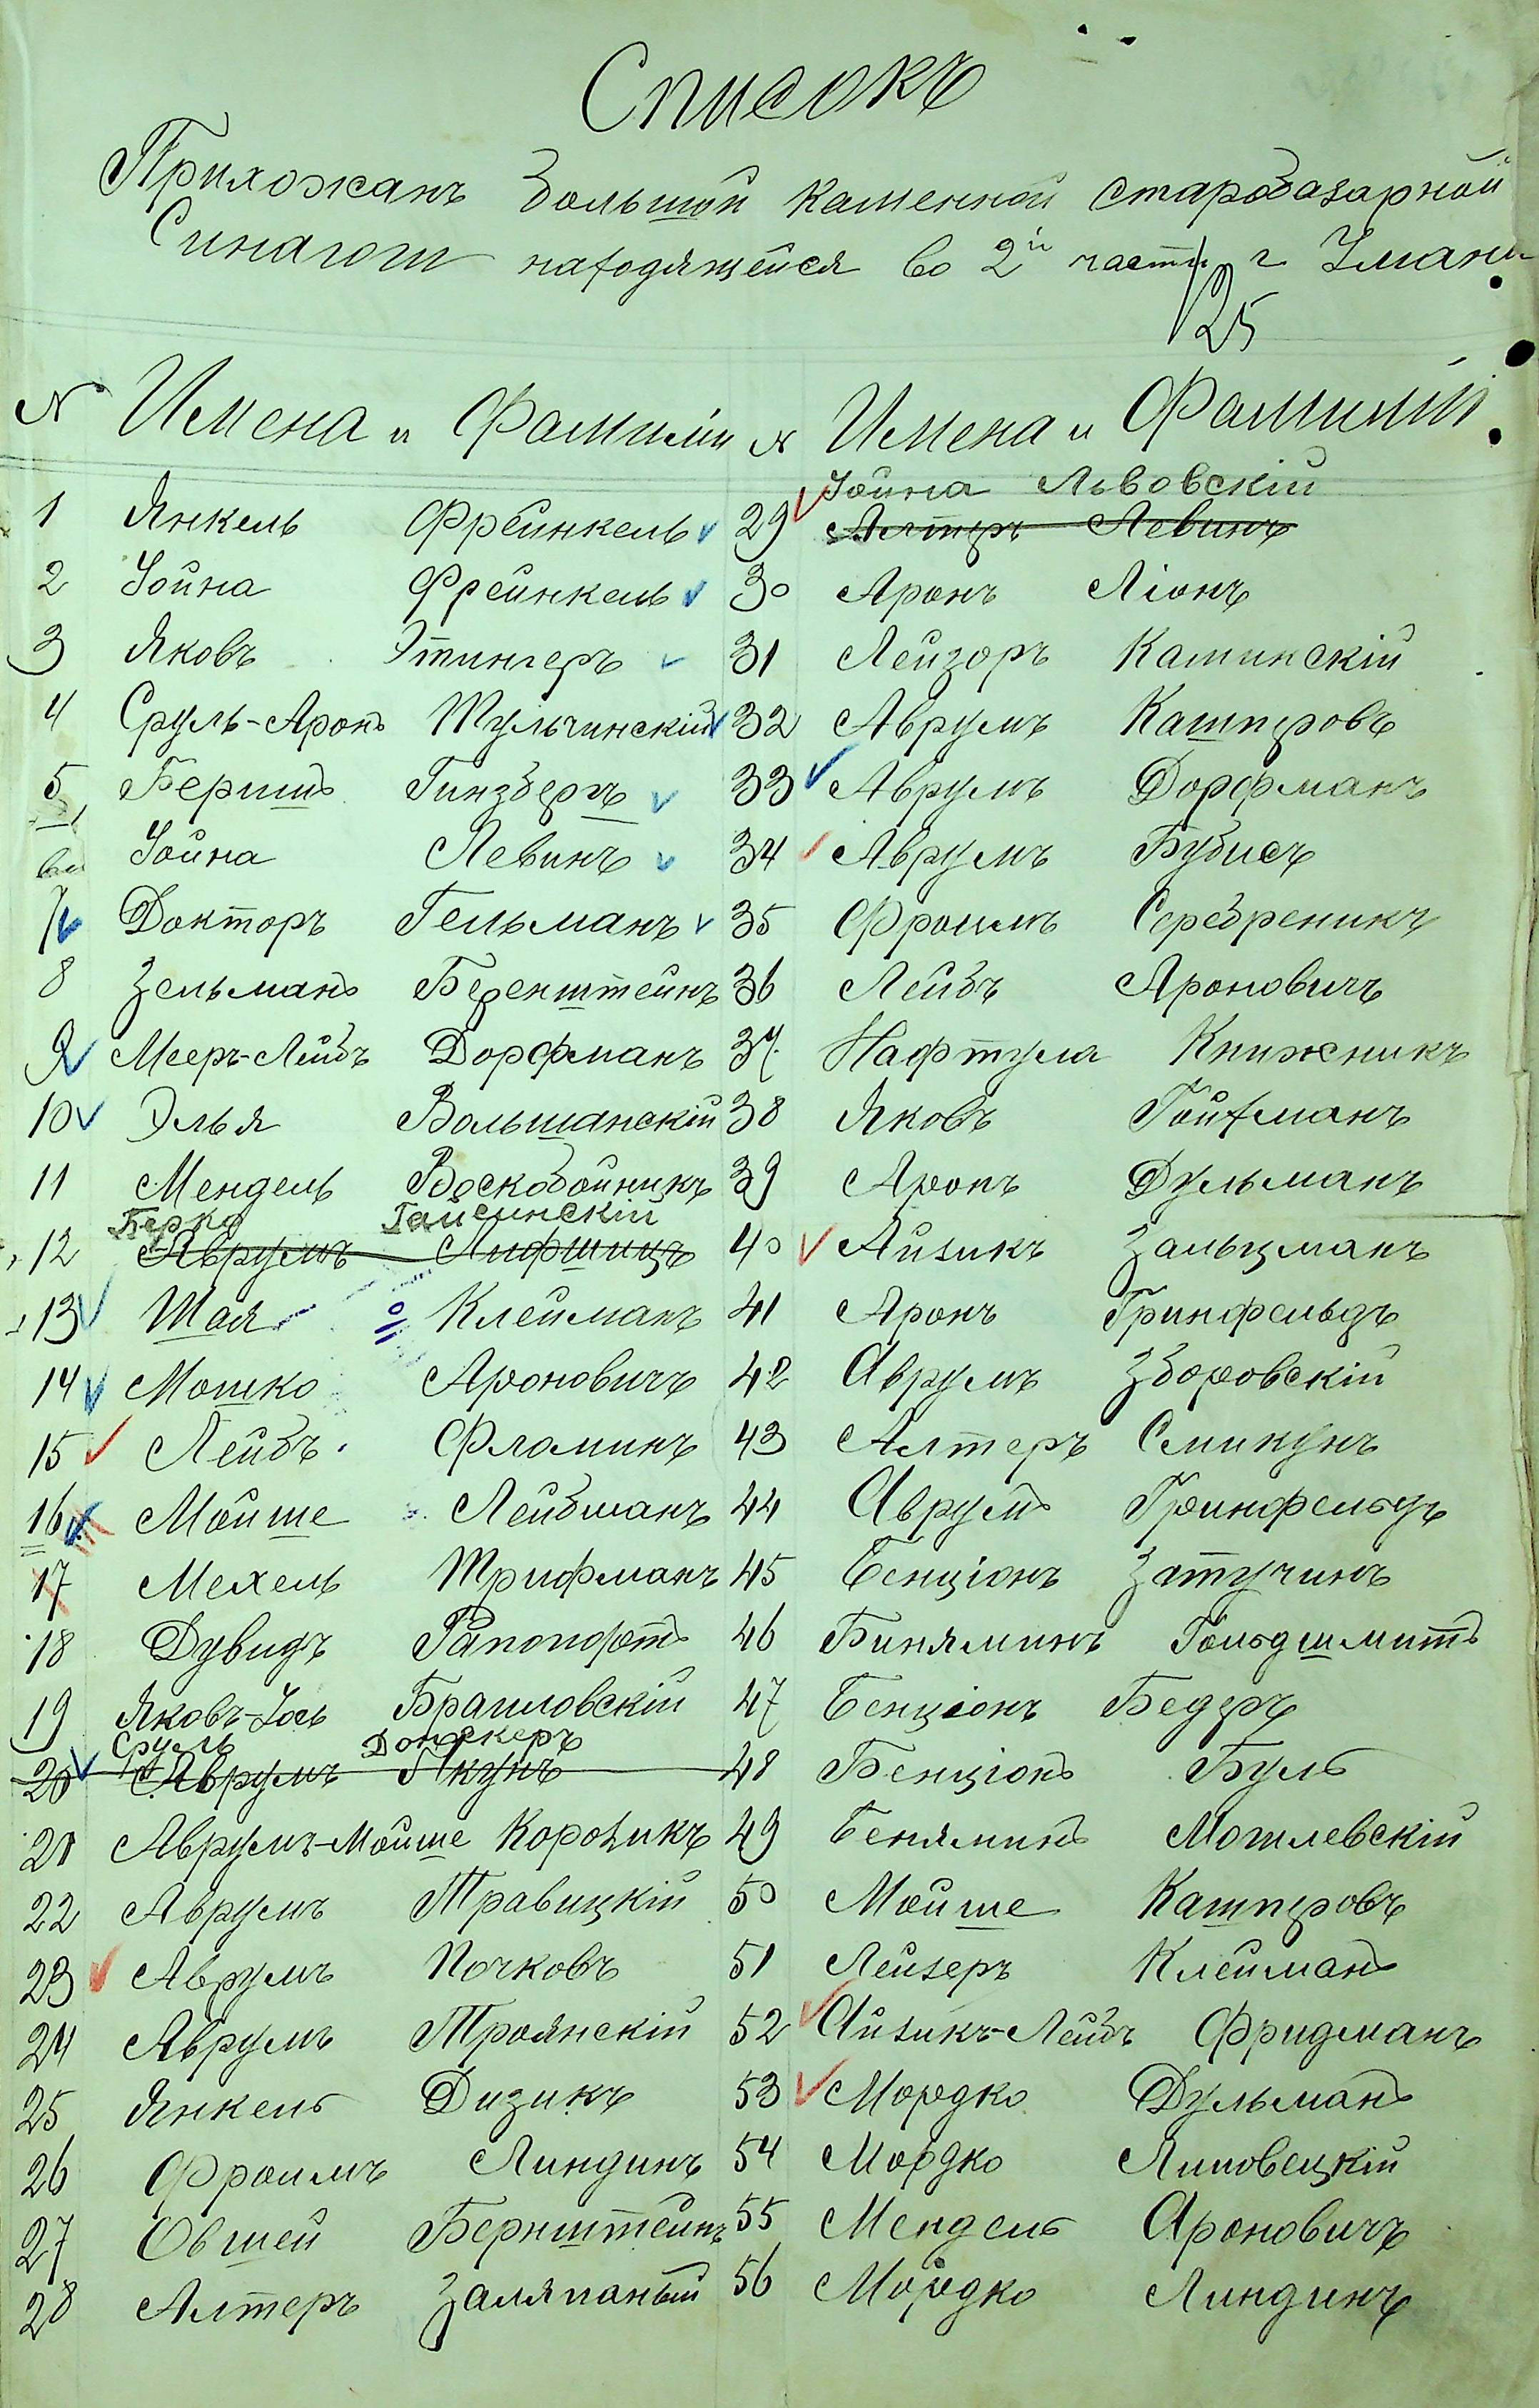 Списокъ
Прихожанъ Большой Каменной старобазарной
Синагоги находящейся во 2й части г Умани
125
№ Имена и Фамилiи № Имена и Фамилiи
1 Янкель Фрейнкель
2 Іойна Фрейнкель
3 Яковъ Этингеръ
4 Сруль-Аронъ Тульчинскій
5 Бершъ Гинзбергъ
Іойна Левинъ
7 Докторъ Гельманъ
8 Зельманъ Беренштейнъ
9 Мееръ-Лейбъ Дорфманъ
10 Элья Вольшанскій
11 Мендель Воскобойникъ
Берко Гайсинскій
12 Аврумъ Лифшицъ
13 Шая Клейманъ
14 Мошко Ароновичъ
15 Лейбъ Фламинъ
16 Мойше Лейбманъ
17 Мехель Трифманъ
18 Дувидъ Рапопортъ
19 Яковъ-Іось Браиловскій
Сруль Донскеръ
20 Аврумъ Якунъ
21 Аврумъ-Мойше Короликъ
22 Аврумъ Травицкій
23 Аврумъ Почковъ
24 Аврумъ Троянскій
25 Янкель Дизикъ
26 Фроимъ Линдинъ
27 Овшей Бернштейнъ
28 Алтеръ Заляпаный
Іойна Львовскій
29 Алтеръ Левинъ
30 Аронъ Ліонъ
31 Лейзоръ Каминскій
32 Аврумъ Кашперовъ
33 Аврумъ Дорфманъ
34 Аврумъ Бубисъ
35 Фроимъ Серебреникъ
36 Лейбъ Ароновичъ
37 Нафтула Книжникъ
38 Яковъ Гойхманъ
39 Аронъ Дульманъ
40 Айзикъ Зальцманъ
41 Аронъ Гринфельдъ
42 Аврумъ Зборовскій
43 Алтеръ Смикунъ
44 Аврумъ Гринфельдъ
45 Бенціонъ Затучинъ
46 Биняминъ Гольдшмитъ
47 Бенціонъ Бедеръ
48 Бенціонъ Буль
49 Беняминъ Могилевскій
50 Мойше Кашперовъ
51 Лейзеръ Клейманъ
52 Айзикъ-Лейбъ Фридманъ
53 Мордко Дульманъ
54 Мордко Липовецкій
55 Мендель Ароновичъ
56 Мордко Линдинъ